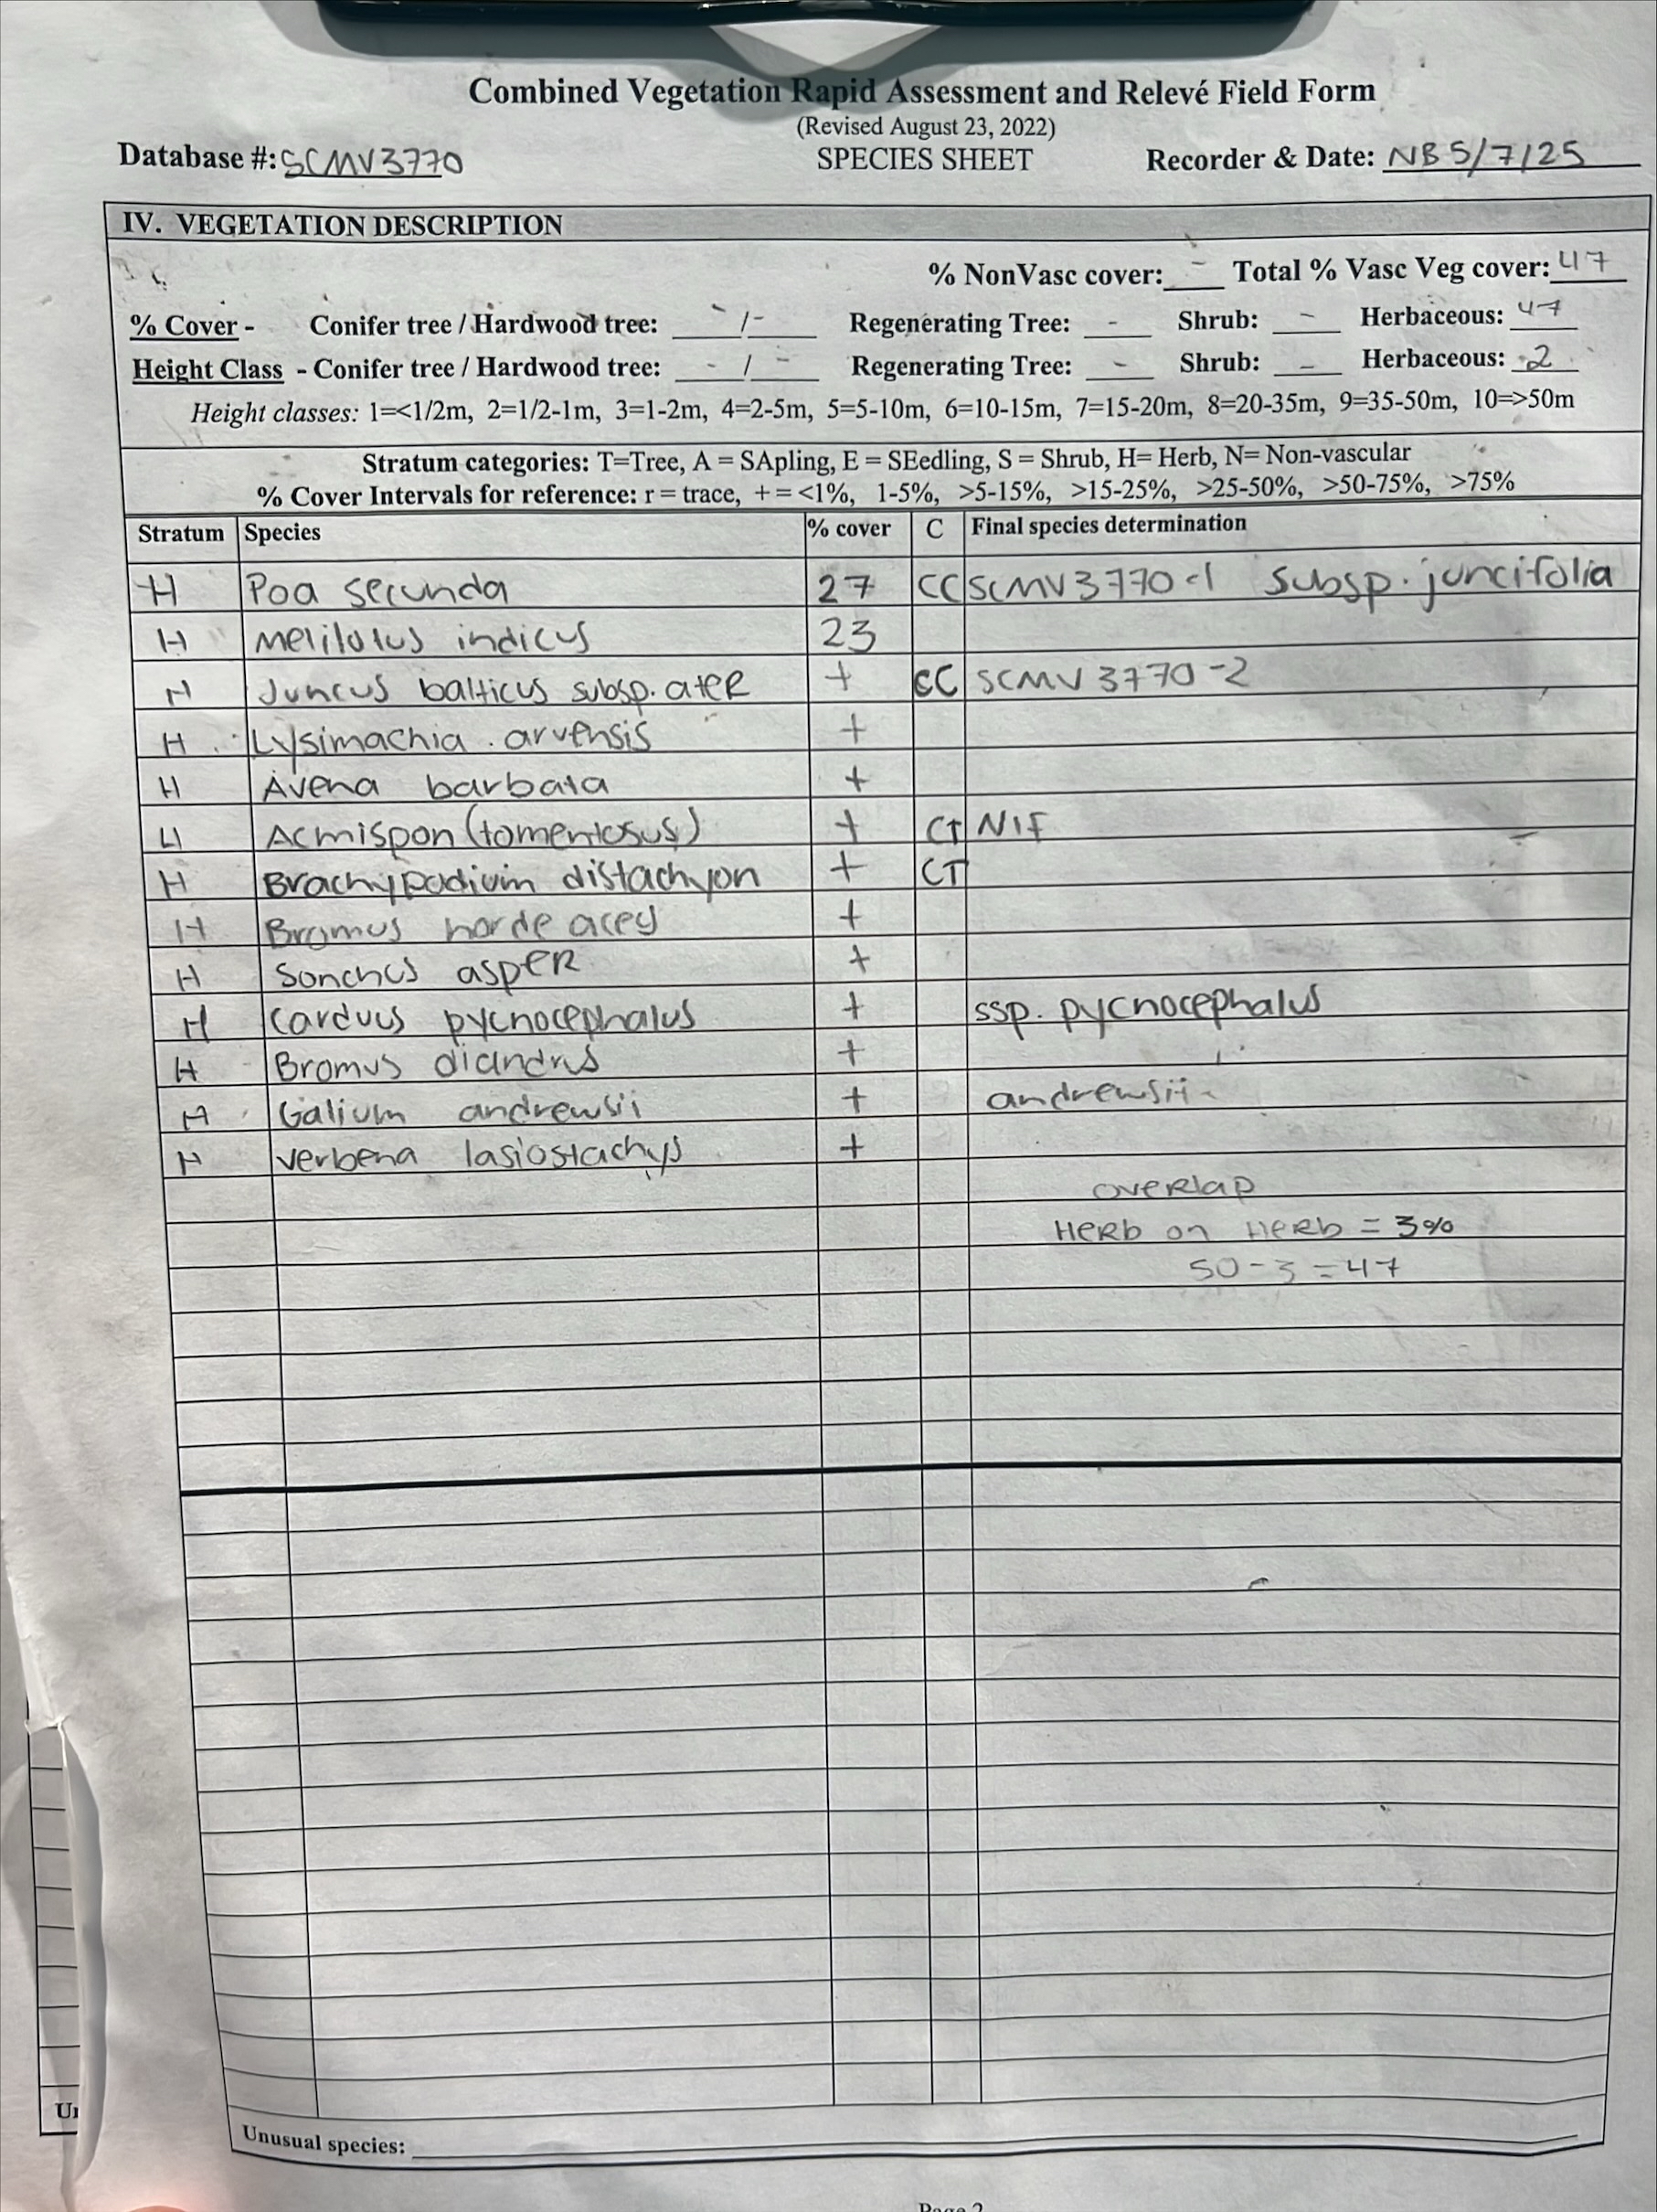 Combined Vegetation Rapid Assessment and Relevé Field Form
(Revised August 23, 2022)
Database #: SCMV3770 SPECIES SHEET Recorder & Date: NB 5/7/25
IV. VEGETATION DESCRIPTION
% NonVasc cover: - Total % Vasc Veg cover: 47
% Cover - Conifer tree / Hardwood tree: - / - Regenerating Tree: - Shrub: - Herbaceous: 47
Height Class - Conifer tree / Hardwood tree: - / - Regenerating Tree: - Shrub: - Herbaceous: 2
Height classes: 1=<1/2m, 2=1/2-1m, 3=1-2m, 4=2-5m, 5=5-10m, 6=10-15m, 7=15-20m, 8=20-35m, 9=35-50m, 10=>50m
Stratum categories: T=Tree, A = SApling, E = SEedling, S = Shrub, H= Herb, N= Non-vascular
% Cover Intervals for reference: r = trace, + = <1%, 1-5%, >5-15%, >15-25%, >25-50%, >50-75%, >75%
Stratum Species % cover C Final species determination
H Poa secunda 27 CC SCMV3770-1 subsp. juncifolia
H Melilotus indicus 23
H Juncus balticus subsp. ater + CC SCMV3770-2
H Lysimachia arvensis +
H Avena barbata +
H Acmispon (tomentosus) + CT NIF
H Brachypodium distachyon + CT
H Bromus hordeacey +
H Sonchus asper +
H Carduus pycnocephalus + ssp. pycnocephalus
H Bromus diandrus +
H Galium andrewsii + andrewsii
H verbena lasiostachys +
overlap
Herb on Herb = 3%
50-3=47
Unusual species:
Page 2